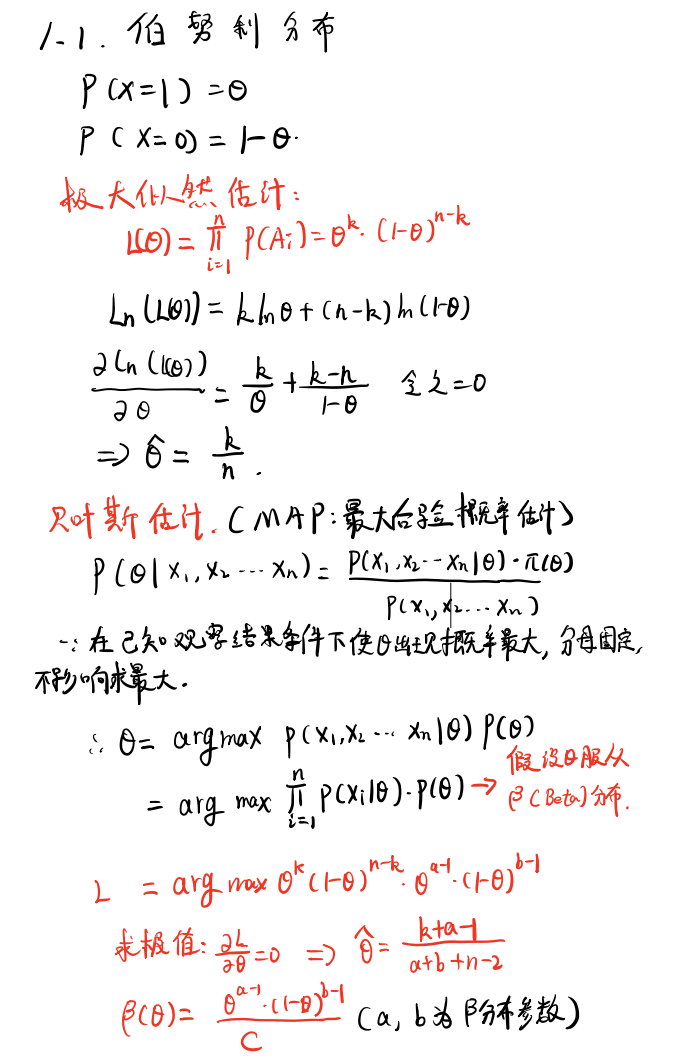 1.1. 伯努利分布
P(X=1)=θ
P(X=0)=1-θ.
极大似然估计:
L(θ)=∏_{i=1}^{n} P(A_i)=θ^k·(1-θ)^{n-k}
Ln(L(θ))=k ln θ+(n-k) ln(1-θ)
∂Ln(L(θ))/∂θ = k/θ + (k-n)/(1-θ) 令之=0
=> θ̂ = k/n.
贝叶斯估计.(MAP:最大后验概率估计)
P(θ|x_1,x_2…x_n)= P(x_1,x_2…x_n|θ)·π(θ) / P(x_1,x_2…x_n)
∵在已知观察结果条件下使θ出现概率最大,分母固定,
不影响求最大.
∴ θ= argmax P(x_1,x_2…x_n|θ)P(θ)
= arg max ∏_{i=1}^{n} P(x_i|θ)·P(θ) → 假设θ服从
β(Beta)分布.
L = arg max θ^k(1-θ)^{n-k}·θ^{a-1}·(1-θ)^{b-1}
求极值: ∂L/∂θ=0 => θ̂= (k+a-1)/(a+b+n-2)
β(θ)= θ^{a-1}·(1-θ)^{b-1} / C (a,b为β分布参数)